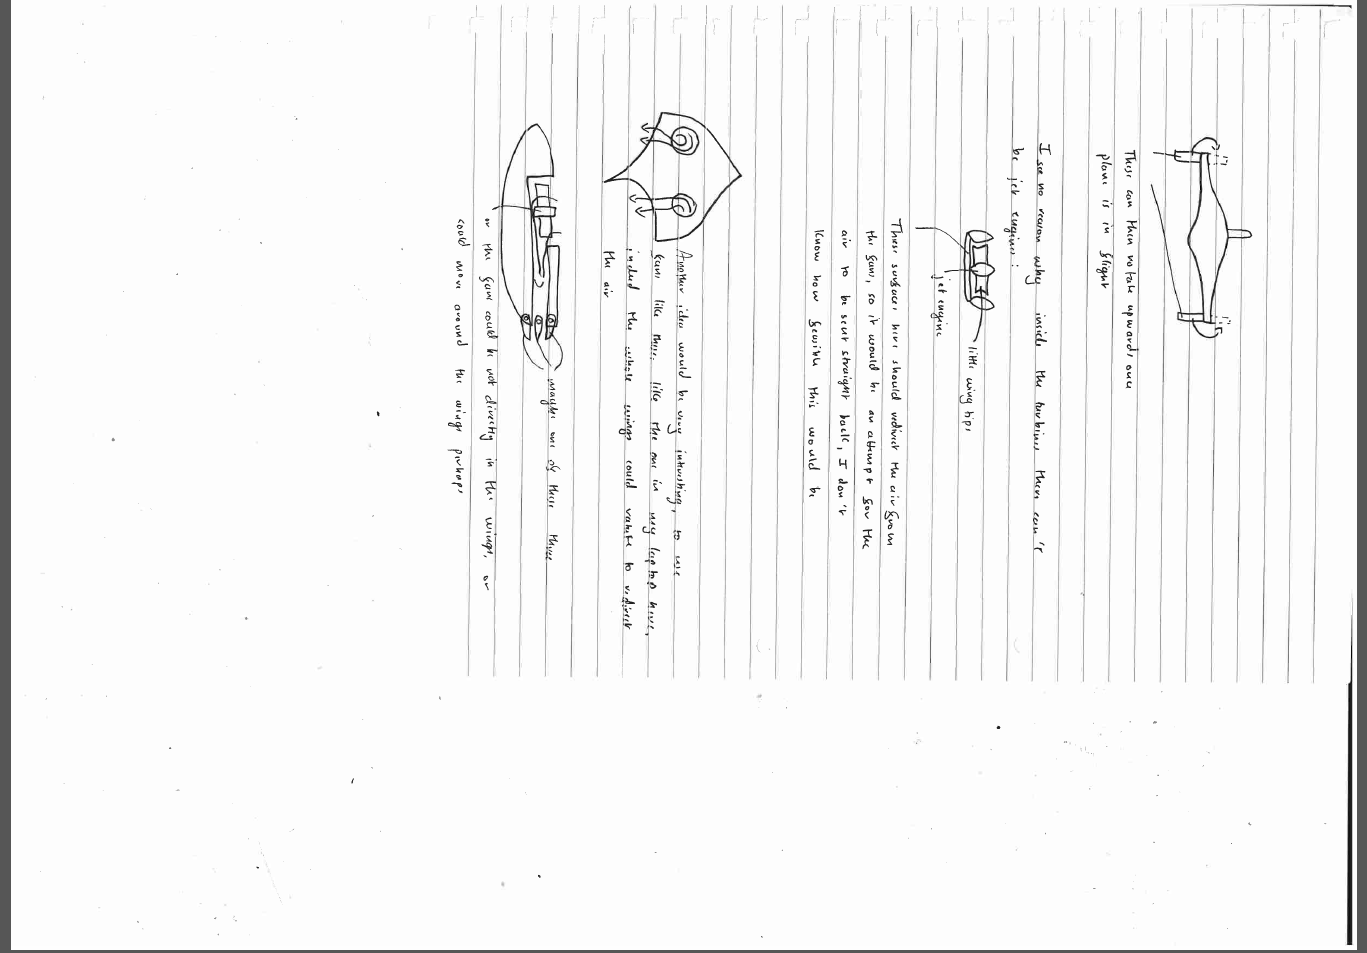 These can then rotate upwards once
plane is in flight
I see no reason why inside the turbines there can't
be jet engines:
little wing tips
jet engine
These surfaces here should redirect the air from
the fan, so it would be an attempt for the
air to be sent straight back, I don't
know how feasible this would be
Another idea would be very interesting, to use
fans like these, like the one in my laptop here,
indeed the whole wings could rotate to redirect
the air
maybe one of these three
or the fan could be not directly in the wings, or
could move around the wings perhaps